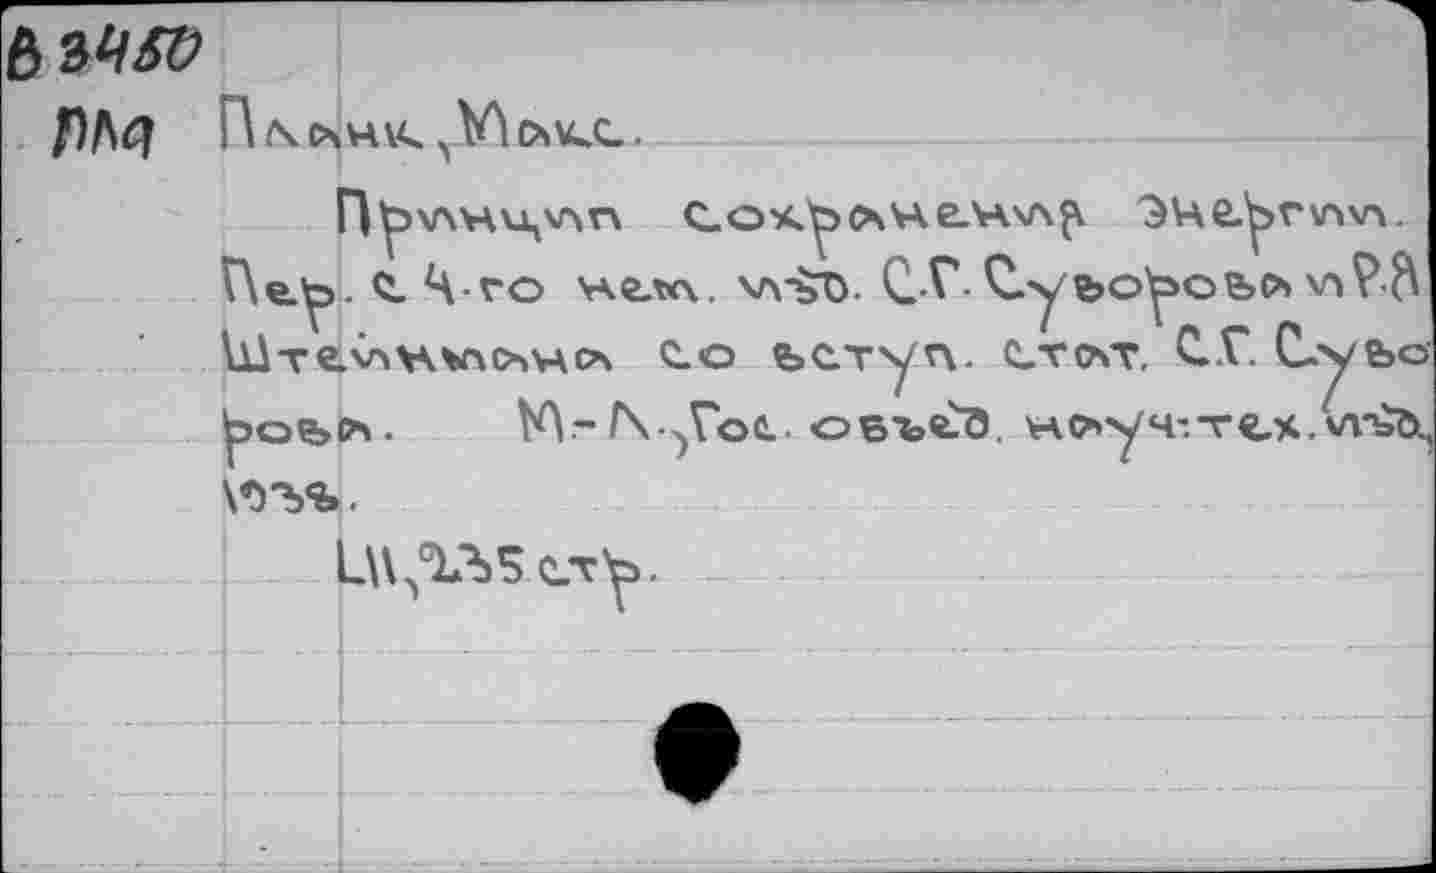 В3450
Пла Планк, Макс.
Принцип сохранения энергии.
Пер. с 4-го нем. изд. С.Г. Суворова и Р.Я
Штейнмана со вступ. стат. С.Г. Суво
рова. М.-Л., Гос. объед. науч-тех. изд.,
1938.
LII, 235 стр.